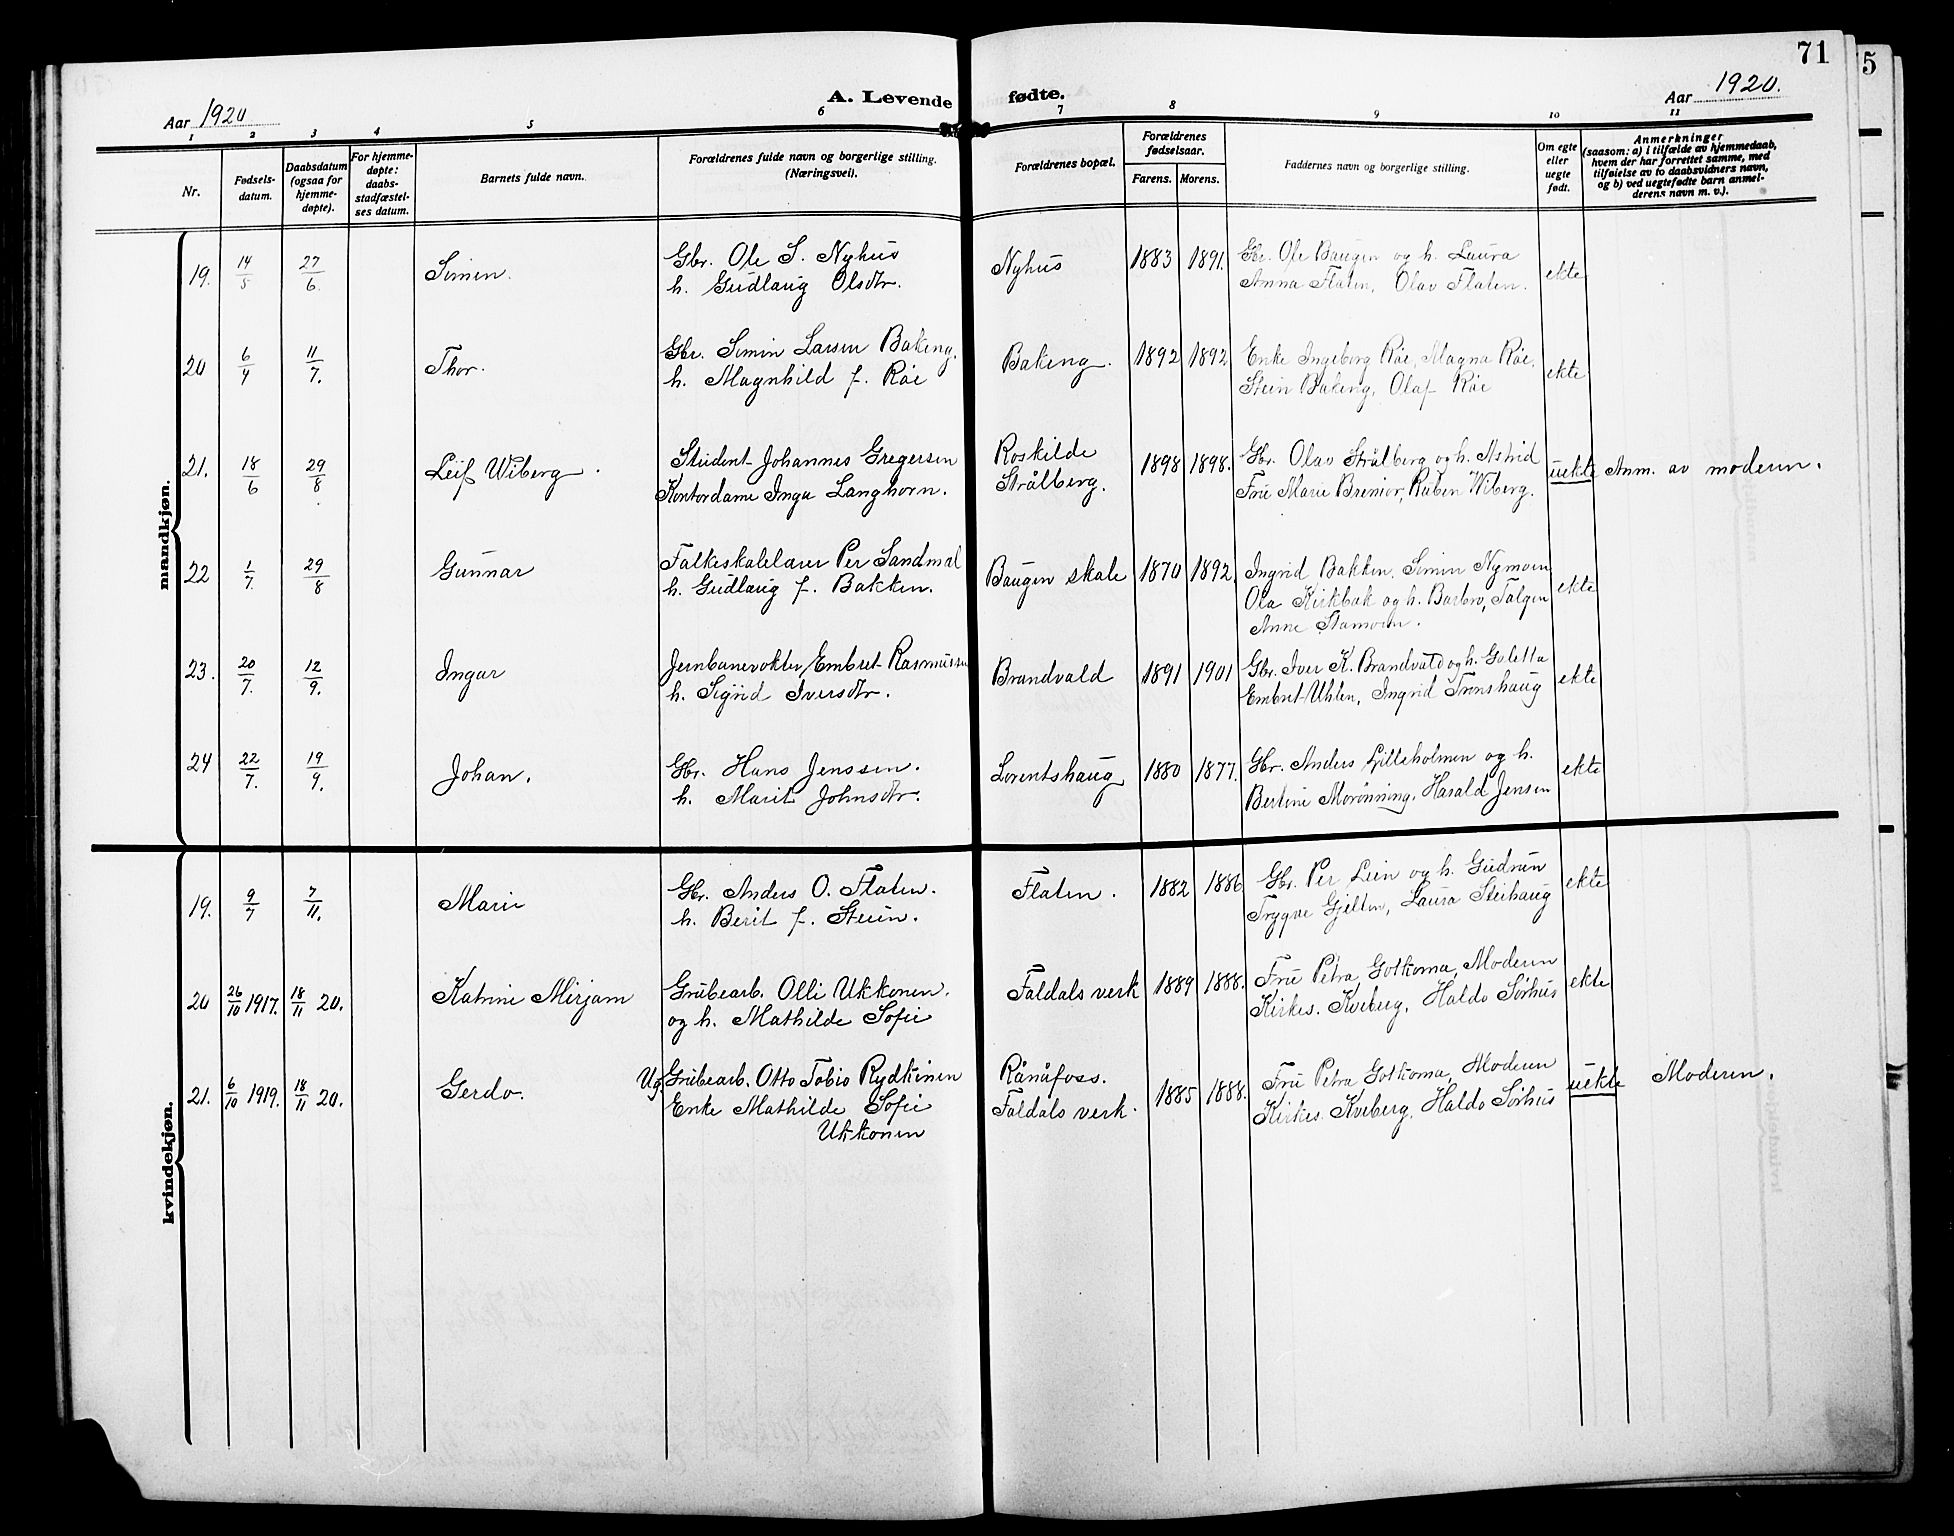 71
5
Aar 1920
A. Levende fødte.
Aar 1920.
1 2 3 4 5 6 7 8 9 10 11
Nr.
Fødsels-
datum.
Daabsdatum
(ogsaa for
hjemme-
døpte).
For hjemme-
døpte:
daabs-
stadfæstel-
ses datum.
Barnets fulde navn.
Forældrenes fulde navn og borgerlige stilling.
(Næringsvei).
Forældrenes bopæl.
Forældrenes
fødselsaar.
Farens. Morens.
Faddernes navn og borgerlige stilling.
Om egte
eller
uegte
født.
Anmerkninger
(saasom: a) i tilfælde av hjemmedaab,
hvem der har forrettet samme, med
tilføielse av to daabsvidners navn,
og b) ved uegtefødte barn anmel-
derens navn m. v.).
mandkjøn.
19. 14/5 27/6. Simen. Gbr. Ole S. Nyhus Nyhus 1883 1891. Gbr. Ole Baugen og h. Laura ekte
h. Gudlaug Olsdtr. Anna Flaten, Olav Flaten.
20 6/4 11/7. Thor. Gbr. Simin Larsen Bakeng. Bakeng. 1892 1892 Enke Ingeborg Røe, Magna Røe, ekte
h. Magnhild f. Røe Stein Bakeng, Olaf Røe
21. 18/6 29/8. Leif Wiberg. Student Johannes Gregersen Roskilde 1898 1898. Gbr. Olav Strålberg og h. Astrid uekte Anm. av moderen.
Kontordame Inga Langhorn. Strålberg. Fru Marie Bremior, Ruben Wiberg.
22 1/7. 29/8 Gunnar Folkeskolelærer Per Sandmæl Baugen skole 1870 1892. Ingrid Bakken. Simin Nymoen ekte
h. Gudlaug f. Bakken. Ola Kirkbak og h. Barbro, Tolgen
Anne Stamoen.
23. 20/7. 12/9. Ingar Jernbanevokter Embret Rasmussen Brandvald 1891 1901 Gbr. Iver K. Brandvald og h. Goletta ekte
h. Sigrid Iversdtr. Embret Uhlen, Ingrid Trønshaug
24 22/7. 19/9. Johan. Gbr. Hans Jenssen. Lorentshaug 1880 1877. Gbr. Anders Lilleholmen og h. ekte
h. Marit Johnsdtr. Bertine Morønning. Harald Jensen
kvindekjøn.
19. 9/7 7/11. Marie Gbr. Anders O. Flaten. Flaten. 1882 1886 Gbr. Per Lien og h. Gudrun ekte
h. Berit f. Steien. Trygve Gjelten, Laura Steihaug
20 26/10 1917. 18/11 20. Katrine Mirjam Grubearb. Olli Ukkonen. Foldals verk 1889 1888. Fru Petra Gotkoma, Moderen ekte
og h. Mathilde Sofie Kirkes. Kveberg, Haldo Sørhus
21. 6/10 1919. 18/11 20. Gerdo. Ug. Grubearb. Otto Tobio Rydkinen Rånåfoss. 1885 1888. Fru Petra Gotkoma, Moderen uekte Moderen.
Enke Mathilde Sofie Foldals verk. Kirkes. Kveberg, Haldo Sørhus
Ukkonen